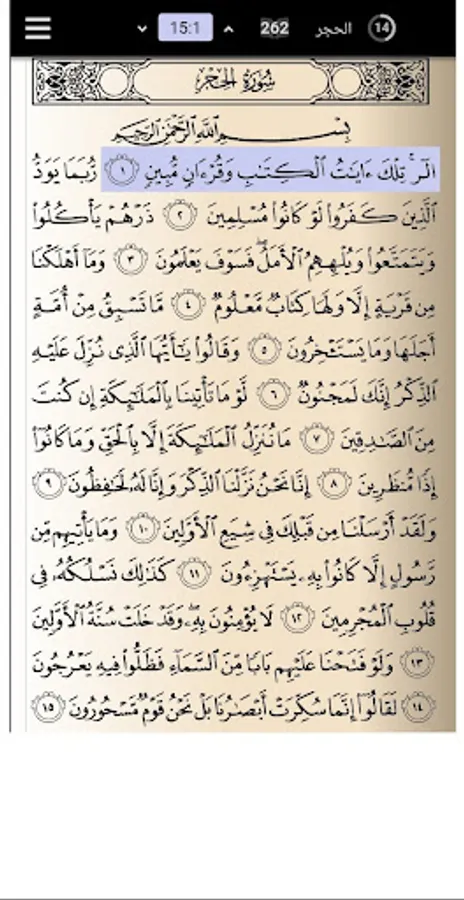 15:1 262 الحجر 14
سُورَةُ الحِجْرِ
بِسْمِ اللَّهِ الرَّحْمَٰنِ الرَّحِيمِ
الٓرۚ تِلْكَ ءَايَٰتُ ٱلْكِتَٰبِ وَقُرْءَانٍ مُّبِينٍ ١ رُّبَمَا يَوَدُّ
ٱلَّذِينَ كَفَرُوا۟ لَوْ كَانُوا۟ مُسْلِمِينَ ٢ ذَرْهُمْ يَأْكُلُوا۟
وَيَتَمَتَّعُوا۟ وَيُلْهِهِمُ ٱلْأَمَلُۖ فَسَوْفَ يَعْلَمُونَ ٣ وَمَآ أَهْلَكْنَا
مِن قَرْيَةٍ إِلَّا وَلَهَا كِتَابٌ مَّعْلُومٌ ٤ مَّا تَسْبِقُ مِنْ أُمَّةٍ
أَجَلَهَا وَمَا يَسْتَـْٔخِرُونَ ٥ وَقَالُوا۟ يَٰٓأَيُّهَا ٱلَّذِى نُزِّلَ عَلَيْهِ
ٱلذِّكْرُ إِنَّكَ لَمَجْنُونٌ ٦ لَّوْ مَا تَأْتِينَا بِٱلْمَلَٰٓئِكَةِ إِن كُنتَ
مِنَ ٱلصَّٰدِقِينَ ٧ مَا نُنَزِّلُ ٱلْمَلَٰٓئِكَةَ إِلَّا بِٱلْحَقِّ وَمَا كَانُوٓا۟
إِذًا مُّنظَرِينَ ٨ إِنَّا نَحْنُ نَزَّلْنَا ٱلذِّكْرَ وَإِنَّا لَهُۥ لَحَٰفِظُونَ ٩
وَلَقَدْ أَرْسَلْنَا مِن قَبْلِكَ فِى شِيَعِ ٱلْأَوَّلِينَ ١٠ وَمَا يَأْتِيهِم مِّن
رَّسُولٍ إِلَّا كَانُوا۟ بِهِۦ يَسْتَهْزِءُونَ ١١ كَذَٰلِكَ نَسْلُكُهُۥ فِى
قُلُوبِ ٱلْمُجْرِمِينَ ١٢ لَا يُؤْمِنُونَ بِهِۦۖ وَقَدْ خَلَتْ سُنَّةُ ٱلْأَوَّلِينَ
١٣ وَلَوْ فَتَحْنَا عَلَيْهِم بَابًا مِّنَ ٱلسَّمَآءِ فَظَلُّوا۟ فِيهِ يَعْرُجُونَ
١٤ لَقَالُوٓا۟ إِنَّمَا سُكِّرَتْ أَبْصَٰرُنَا بَلْ نَحْنُ قَوْمٌ مَّسْحُورُونَ ١٥